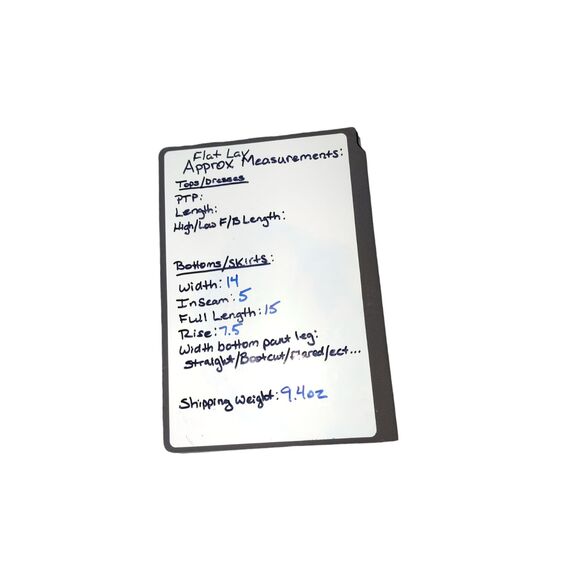 Flat Lay
Approx Measurements:
Tops/Dresses
PTP:
Length:
High/Low F/B Length:
Bottoms/Skirts:
Width: 14
Inseam: 5
Full Length: 15
Rise: 7.5
Width bottom pant leg:
Straight/Bootcut/Flared/ect...
Shipping Weight: 9.4oz